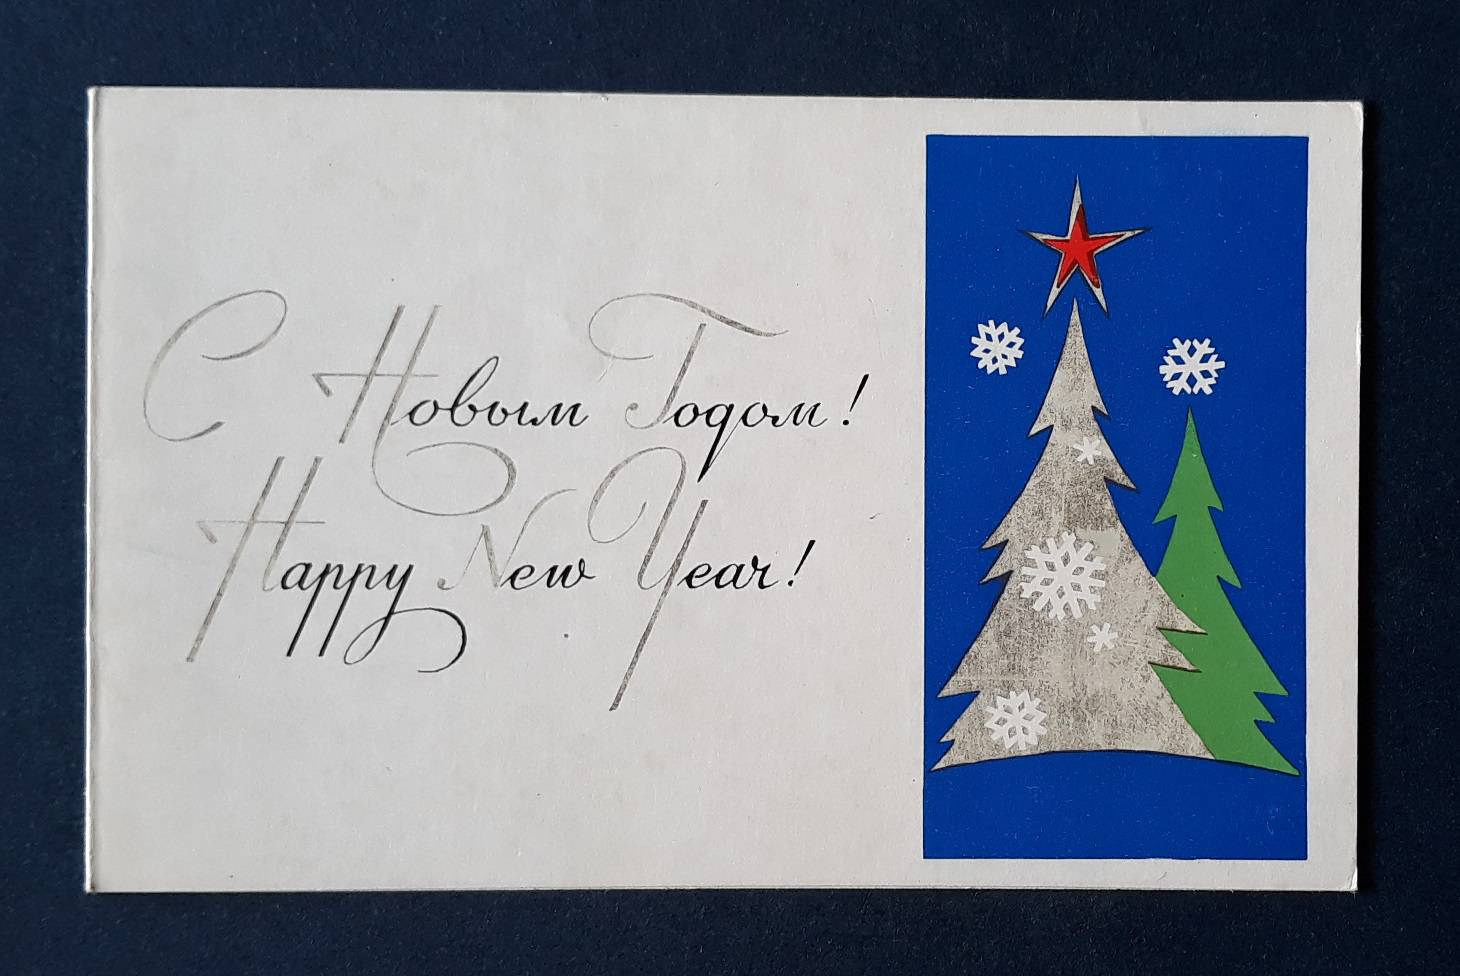 С Новым Годом!
Happy New Year!